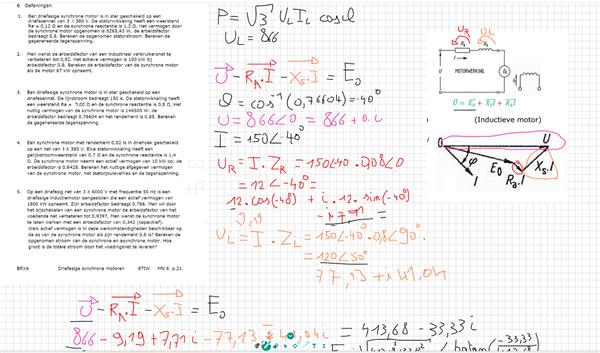 6 Oefeningen
1. Een driefasige synchrone motor is in ster geschakeld op een
driefasennet van 3 X 380 V. De statorwikkeling heeft een weerstand
Ra = 0,12 Ω en de synchrone reactantie is 1,2 Ω. Het vermogen door
de synchrone motor opgenomen is 5265,43 W, de arbeidsfactor
bedraagt 0,8. Bereken de opgenomen statorstroom. Bereken de
gegenereerde tegenspanning.
2. Men wenst de arbeidsfactor van een industrieel verbruikersnet te
verbeteren tot 0,92. Het actieve vermogen is 100 kW bij
arbeidsfactor 0.8. Bereken de arbeidsfactor van de synchrone motor
als de motor 67 kW opneemt.
3. Een driefasige synchrone motor is in ster geschakeld op een
driefasennet. De lijnstroom bedraagt 150 A. De statorwikkeling heeft
een weerstand en de synchrone reactantie is 0,8 Ω. Het
nuttig vermogen van de synchrone motor is W, de
arbeidsfactor bedraagt 0,76604 en het rendement is 0,85. Bereken
de gegenereerde tegenspanning.
4. Een synchrone motor met rendement 0,82 is in driehoek geschakeld
op een net van 3 X 380 V. Elke statorwikkeling heeft een
gelijkstroomweerstand van 0,7 Ω en de synchrone reactantie is 1,4
Ω. De synchrone motor neemt een actief vermogen van 10 kW op, de
arbeidsfactor is 0,6428. Bereken het nuttige afgegeven vermogen van
de synchrone motor, het statorjouleverlies en de tegenspanning.
5. Op een driefasig net van 3 X 6000 V met frequentie 50 Hz is een
driefasige inductiemotor aangesloten die een actief vermogen van
1800 kW opneemt. Zijn arbeidsfactor bedraagt 0,766. Men wil door
het bijschakelen van een synchrone motor de arbeidsfactor van het
voedende net verbeteren tot 0,9397. Men wenst de synchrone motor
te laten werken met een arbeidsfactor van 0,342 (capacitief).
Welk actief vermogen is in deze werkomstandigheden beschikbaar op
de as van de synchrone motor als zijn rendement 0,8 is? Bereken de
opgenomen stroom van de synchrone en asynchrone motor. Hoe
groot is de totale stroom door het voedingsnet te leveren?
BRXA Driefasige synchrone motoren 6TIW Mfd 6 p.21
P = √3 U_L I_L cosφ
U_L = 866
U - R_A.I - X_S.I = E_0
= cos⁻¹(0,76604) = -40°
U = 866∠0 = 866 + 0.i
I = 150∠-40°
U_R = I . Z_R = 150∠40 . 0,08∠0
= 12∠-40° =
12.cos(-40) + i.12.sin(-40°)
U_L = I . Z_L = 150∠-40° . 0,8∠90°
= 120∠50°
77,13 +
U_R U_L
MOTORWERKING
(Inductieve motor)
O U
φ E_0 X_s.I
I R_a.I
U - R_A.I - X_S.I = E_0
866 - 9,19 + 7,71 i - 77,13
= 413,68 - 33,33i